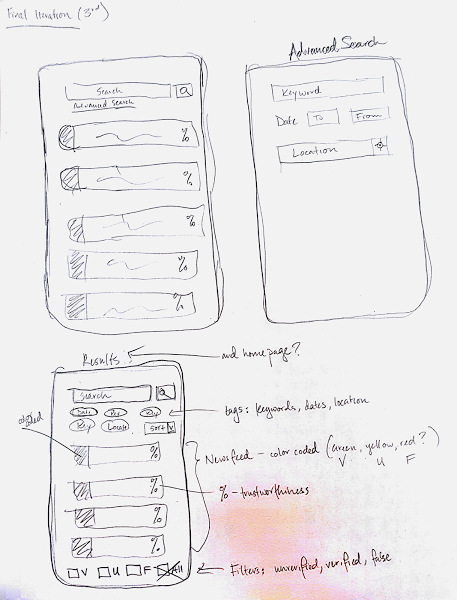 Final Iteration (3rd)
Advanced Search
Search
Advanced Search
%
%
%
%
%
Keyword
Date To From
Location
Results
and homepage?
Search
Key
Key Locate Sort
tags: keywords, dates, location
%
%
%
%
Newsfeed - color coded (green, yellow, red?)
V U F
% - trustworthiness
V U F All
Filters: unverified, verified, false